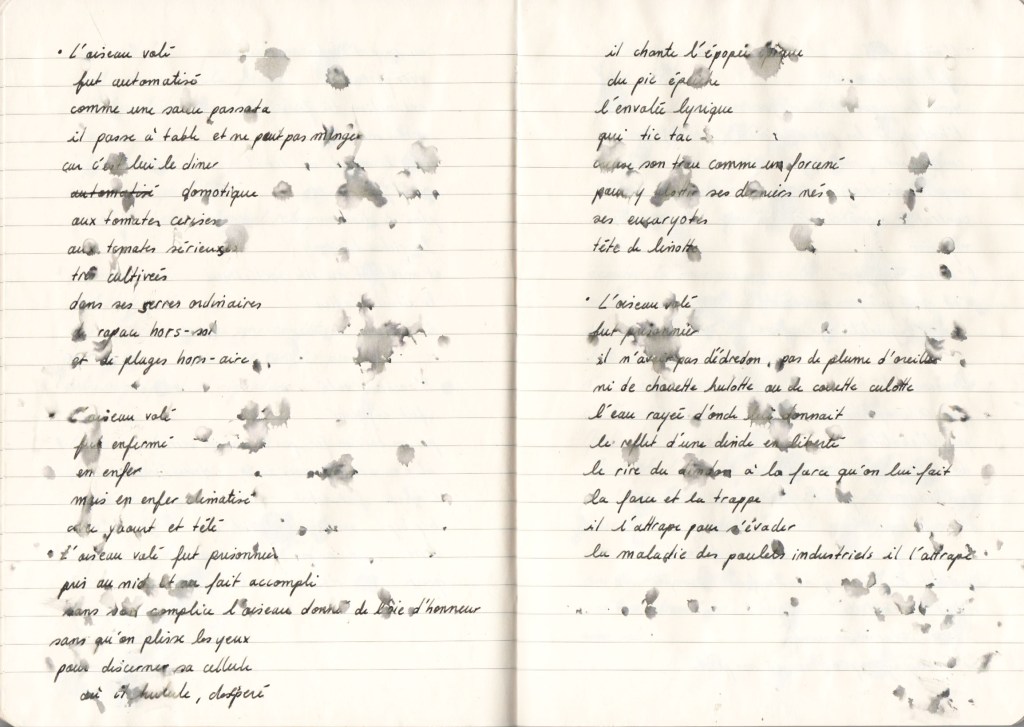 • L'oiseau volé
fut automatisé
comme une sauce passata
il passe à table et ne peut pas manger
car c'est lui le diner
automatisé domotique
aux tomates cerises
aux tomates sérieuses
très cultivées
dans ses serres ordinaires
de rapace hors-sol
et de plages hors-aire.
• L'oiseau volé
fut enfermé
en enfer
mais en enfer climatisé
yaourt et tété
• L'oiseau volé fut prisonnier
pris au nid et au fait accompli
sans seul complice l'oiseau donné de l'oie d'honneur
sans qu'on plisse les yeux
pour discerner sa cellule
où il hulule, désspéré
il chante l'épopée épique
du pic épeiche
l'envolée lyrique
qui tic tac
creuse son trou comme un forcené
pour y nourrir ses derniers nés
ses eucaryotes
tête de linotte
• L'oiseau volé
fut prisonnier
il n'avait pas d'édredon, pas de plume d'oreiller
ni de chouette hulotte ou de couette culotte
l'eau rayée d'onde lui donnait
le reflet d'une dinde en liberté
le rire du dindon à la farce qu'on lui fait
la farce et la trappe
il l'attrape pour s'évader
la maladie des poulets industriels il l'attrape